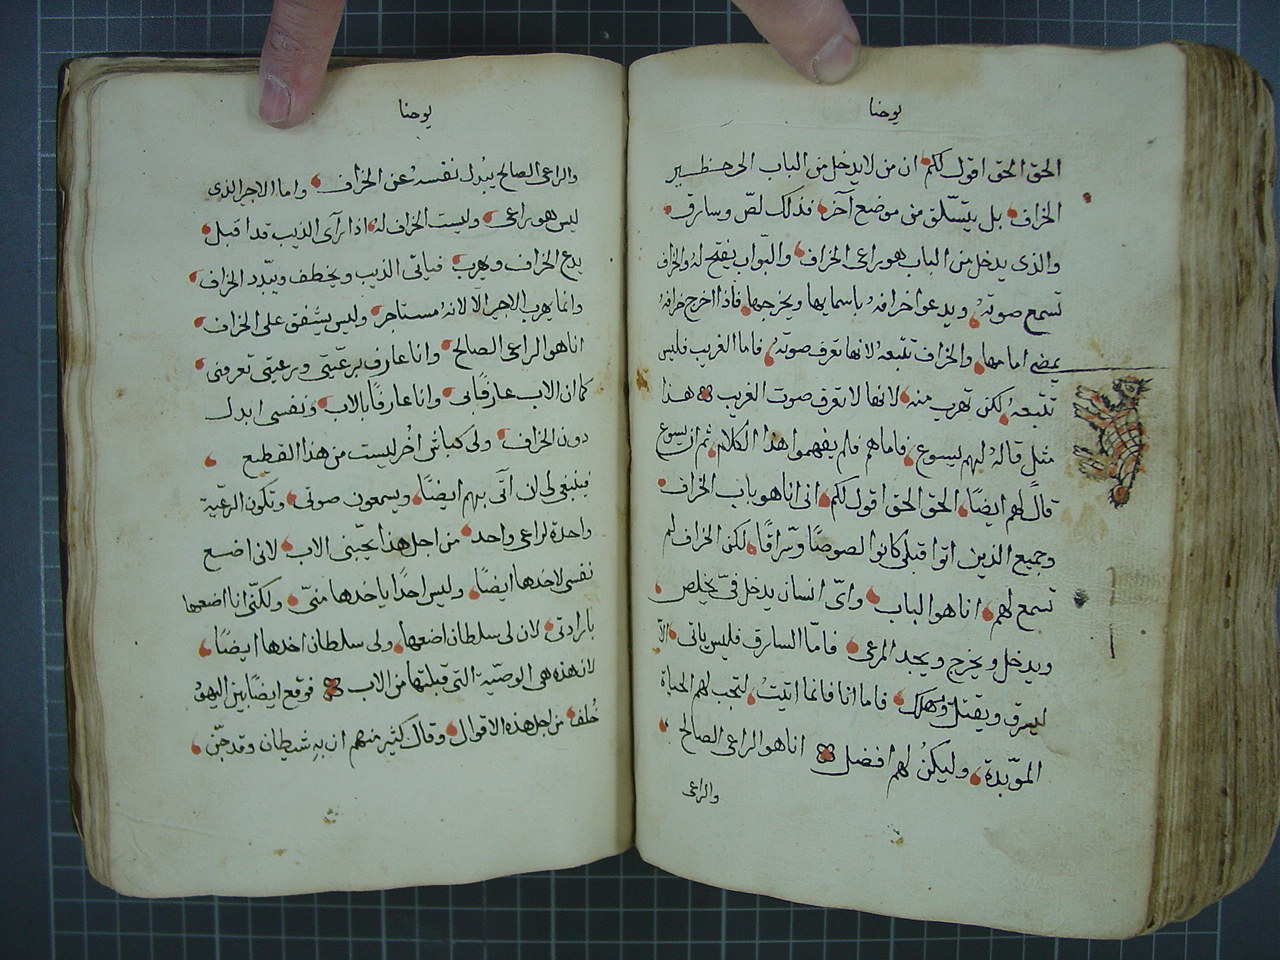 يوحنا
الحق الحق اقول لكم ان من لا يدخل من الباب الى حظير
الخراف بل يتسلق من موضع آخر فذلك لص وسارق
والذى يدخل من الباب هو راعى الخراف والبواب يفتح له والخراف
تسمع صوته ويدعوا خرافه باسمايها ويخرجها فاذا اخرج خرافه
يمضى امامها والخراف تتبعه لانها تعرف صوته فاما الغريب فليس
تتبعه لكن تهرب منه لانها لا تعرف صوت الغريب هذا
مثل قاله لهم يسوع فاما هم فلم يفهموا هذا الكلام ثم ان يسوع
قال لهم ايضًا الحق الحق اقول لكم انى انا هو باب الخراف
وجميع الذين اتوا قبلى كانوا لصوصًا وسرّاقًا لكن الخراف لم
تسمع لهم انا هو الباب واىّ انسان يدخل فىّ يخلص
ويدخل ويخرج ويجد المرعى فامّا السارق فليس ياتى الّا
ليسرق ويقتل ويهلك فاما انا فانما اتيت لتجب لهم الحياة
الموّبدة وليكن لهم افضل انا هو الراعى الصالح
والراعى
يوحنا
والراعى الصالح يبدل نفسه عن الخراف واما الاجير الذى
ليس هو براعى وليست الخراف له اذا رآى الذيب قد اقبل
يدع الخراف ويهرب فياتى الذيب ويخطف ويبدد الخراف
وانما يهرب الاجير الا لانه مستاجر وليس يشفق على الخراف
انا هو الراعى الصالح وانا عارف برعيّتى ورعيتى تعرفنى
كما ان الاب عارفًا بى وانا عارفًا بالاب ونفسى ابدل
دون الخراف ولى كباش اخر ليست من هذا القطيع
فينبغى لى ان آتى بهم ايضًا ويسمعون صوتى وتكون الرعية
واحدة لراعى واحد من اجل هذا يحبنى الاب لانى اضع
نفسى لاخدها ايضًا وليس احدًا ياخدها منىّ ولكنّى انا اضعها
بارادتى لان لى سلطان اضعها ولى سلطان اخدها ايضًا
لان هذه هى الوصيّة التى قبلتها من الاب فوقع ايضًا بين اليهود
خلف من اجل هذه الاقوال وقال كثير منهم ان به شيطان وقد جنّ